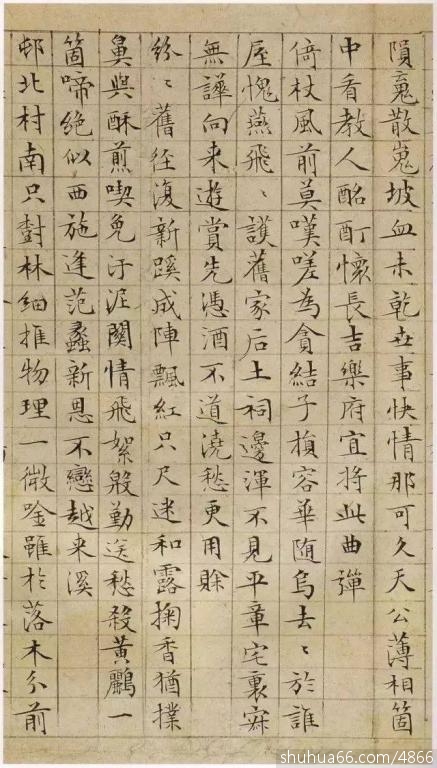 隕蒐散嵬坡血未乾世事快情那可久天公薄相箇
中看教人酩酊懷長吉樂府宜將此曲彈
倚杖風前莫嘆嗟為貪結子損容華随烏去〻於誰
屋愧燕飛〻護舊家后土祠邊渾不見平章宅裏寂
無譁向来遊賞先憑酒不道澆愁更用賒
紛〻舊径復新蹊成陣飄紅只尺迷和露掬香猶撲
鼻與酥煎喫免汙泥関情飛絮殷勤送愁殺黃鸝一
箇啼絶似西施逢范蠡新恩不戀越来溪
邨北村南只對林細推物理一微唫雖於落木分前
shuhua66.com/4866